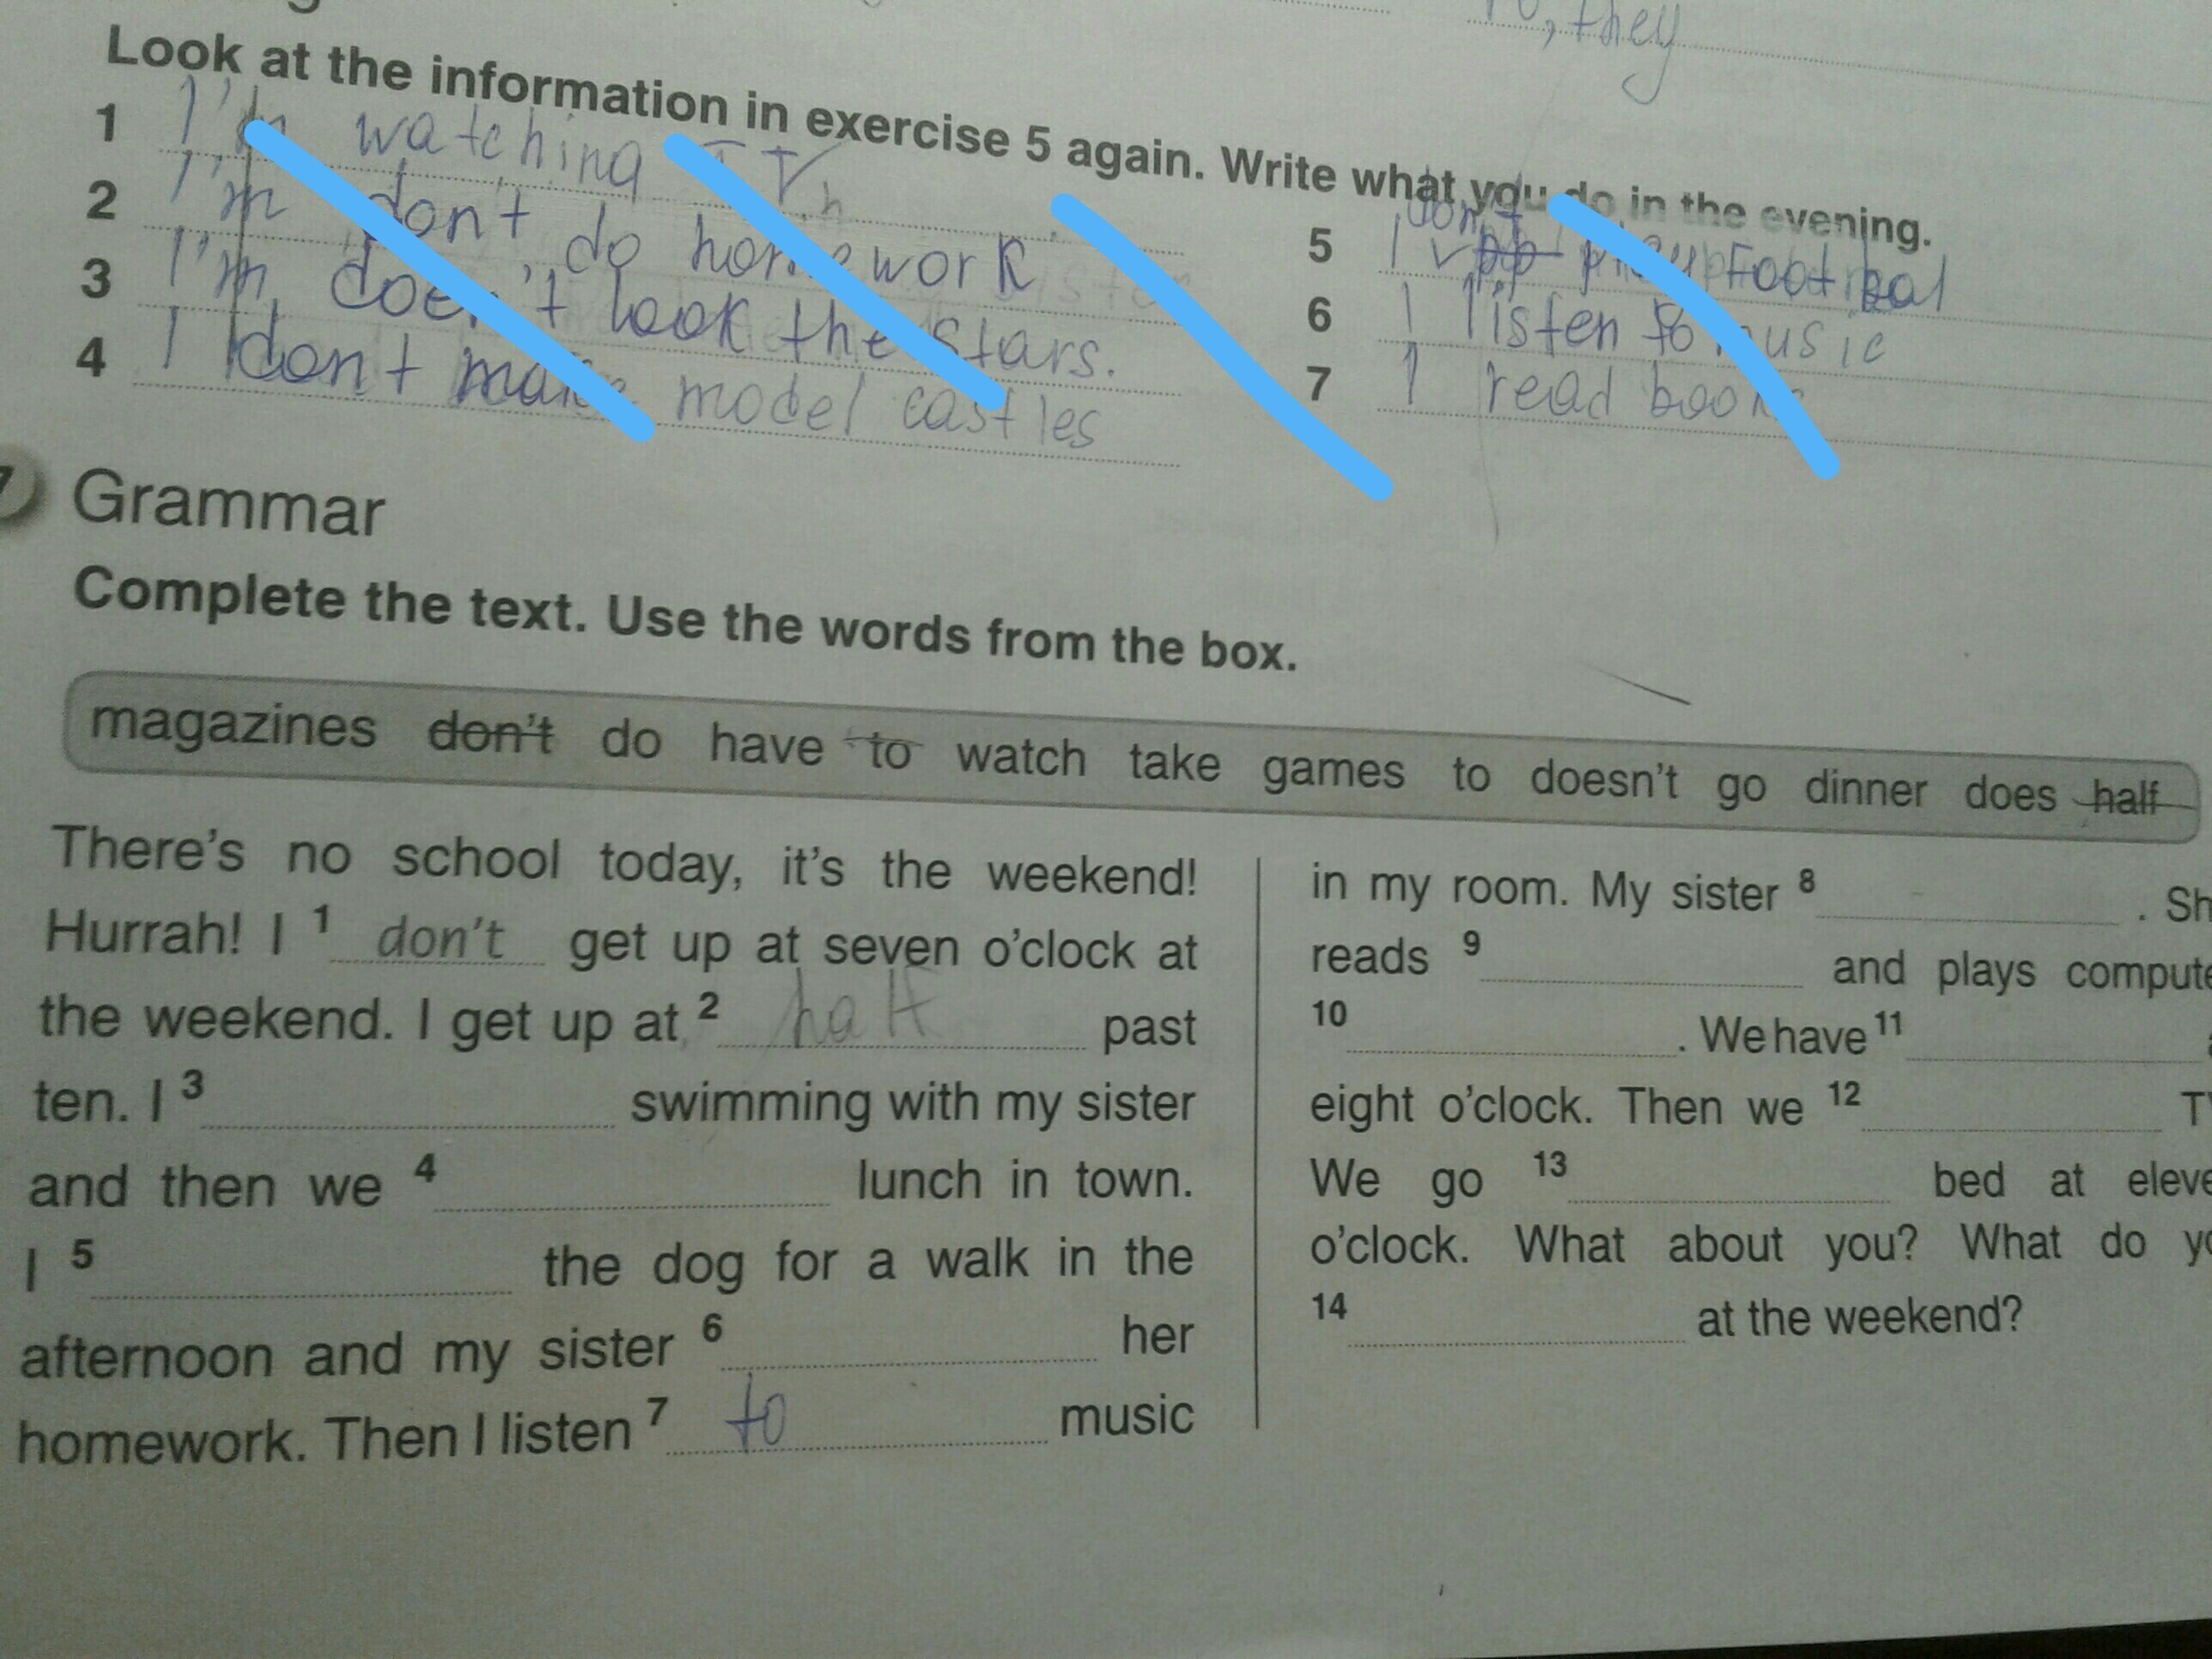 , they
Look at the information in exercise 5 again. Write what you do in the evening.
1 I'm watching TV
2 I'm don't do homework
3 I'm doesn't look the stars.
4 I don't make model castles
5 I don't play Football
6 I listen to music
7 I read books
7 Grammar
Complete the text. Use the words from the box.
magazines don't do have to watch take games to doesn't go dinner does half
There's no school today, it's the weekend!
Hurrah! I 1 don't get up at seven o'clock at
the weekend. I get up at 2 half past
ten. I 3 swimming with my sister
and then we 4 lunch in town.
I 5 the dog for a walk in the
afternoon and my sister 6 her
homework. Then I listen 7 to music
in my room. My sister 8 . Sh
reads 9 and plays compute
10 . We have 11
eight o'clock. Then we 12 T
We go 13 bed at eleve
o'clock. What about you? What do yo
14 at the weekend?